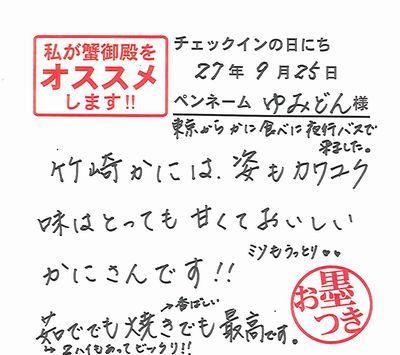 私が蟹御殿を
オススメ
します!!
チェックインの日にち
27年9月25日
ペンネーム ゆみどん様
東京からかに食べに夜行バスで
来ました。
竹崎かには、姿もカワユク
味はとっても甘くておいしい
ミソもうっとり♥♥
かにさんです!!
→香ばしい
茹ででも焼きでも最高です。
→2ハイもあってビックリ!!
お墨つき